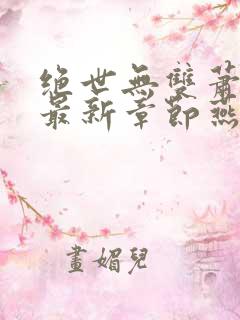 绝世無雙蕭
最新章節燕
畫媚兒